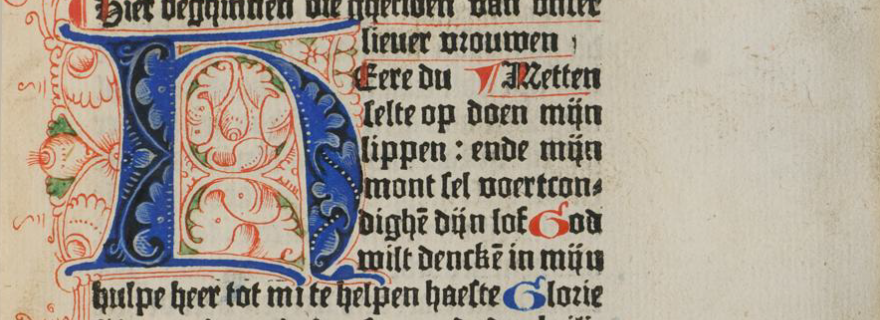 Hier beghinnen die ghetiden van onser
lieuer vrouwen
HEere du Metten
selte op doen mijn
lippen : ende mijn
mont sel voertcon=
dighē dijn lof God
wilt denckē in mijn
hulpe heer tot mi te helpen haeste Glorie